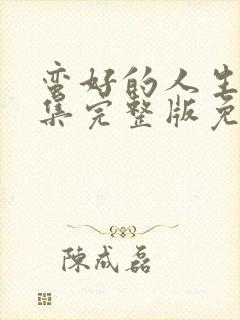 蛮好的人生
集完整版免
陳成磊